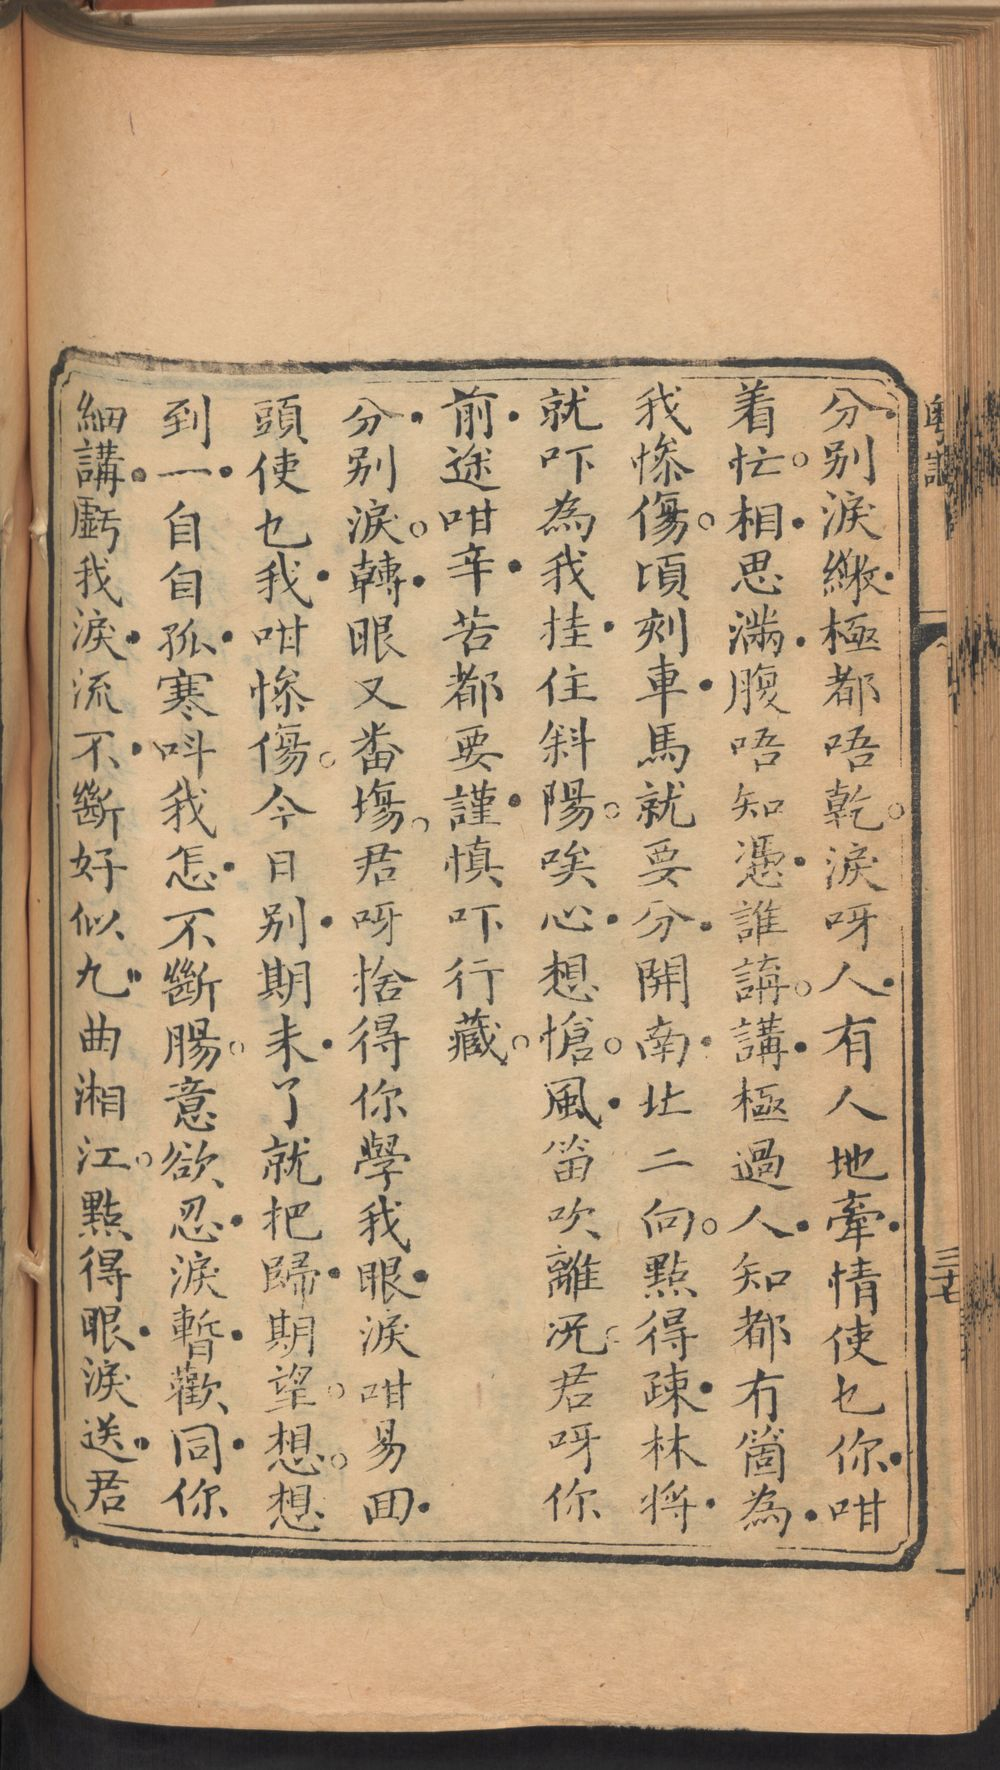 分別淚繳極都唔乾淚呀人有人地牽情使乜你咁
着忙相思滿腹唔知憑誰講講極過人知都冇箇為
我慘傷頃刻車馬就要分開南北二向點得疎林將
就吓為我挂住斜陽唉心想愴風笛吹離況君呀你
前途咁辛苦都要謹慎吓行藏
分別淚轉眼又番場君呀捨得你學我眼淚咁易囬
頭使乜我咁慘傷今日別期未了就把歸期望想想
到一自自孤寒呌我怎不斷腸意欲忍淚暫歡同你
細講虧我淚流不斷好似九曲湘江點得眼淚送君
三十七